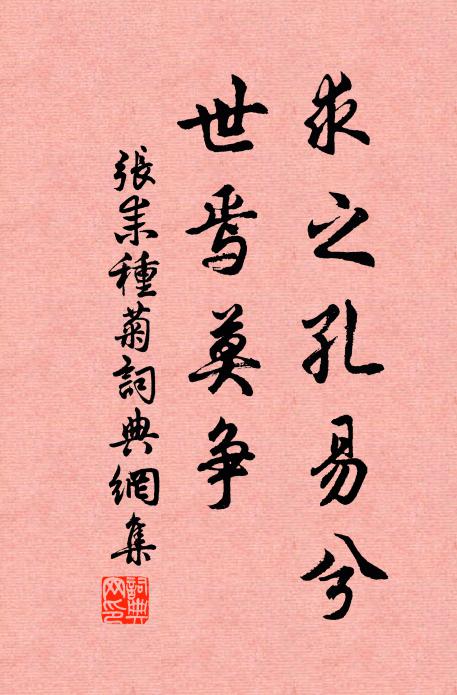 求之孔易兮
世焉莫争
張耒種菊詞典網集
詞典網印